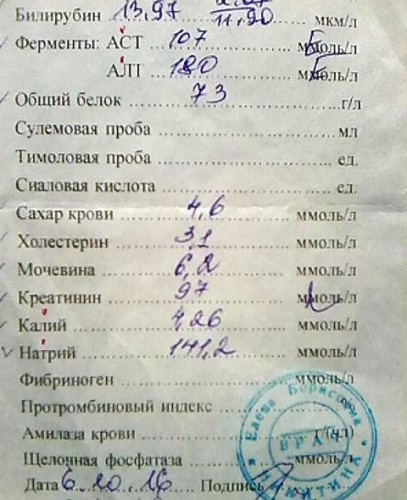 Билирубин 13,97 11,90 мкм/л
Ферменты: АСТ 107 ммоль/л
АЛТ 180 ммоль/л
Общий белок 73 г/л
Сулемовая проба мл
Тимоловая проба ед.
Сиаловая кислота ед.
Сахар крови 4,6 ммоль/л
Холестерин 3,1 ммоль/л
Мочевина 6,2 ммоль/л
Креатинин 97 ммоль/л
Калий 4,26 ммоль/л
Натрий 141,2 ммоль/л
Фибриноген ммоль/л
Протромбиновый индекс
Амилаза крови
Щелочная фосфатаза ммоль/л
Дата 6.10.16 Подпись
Елена ВРАЧ